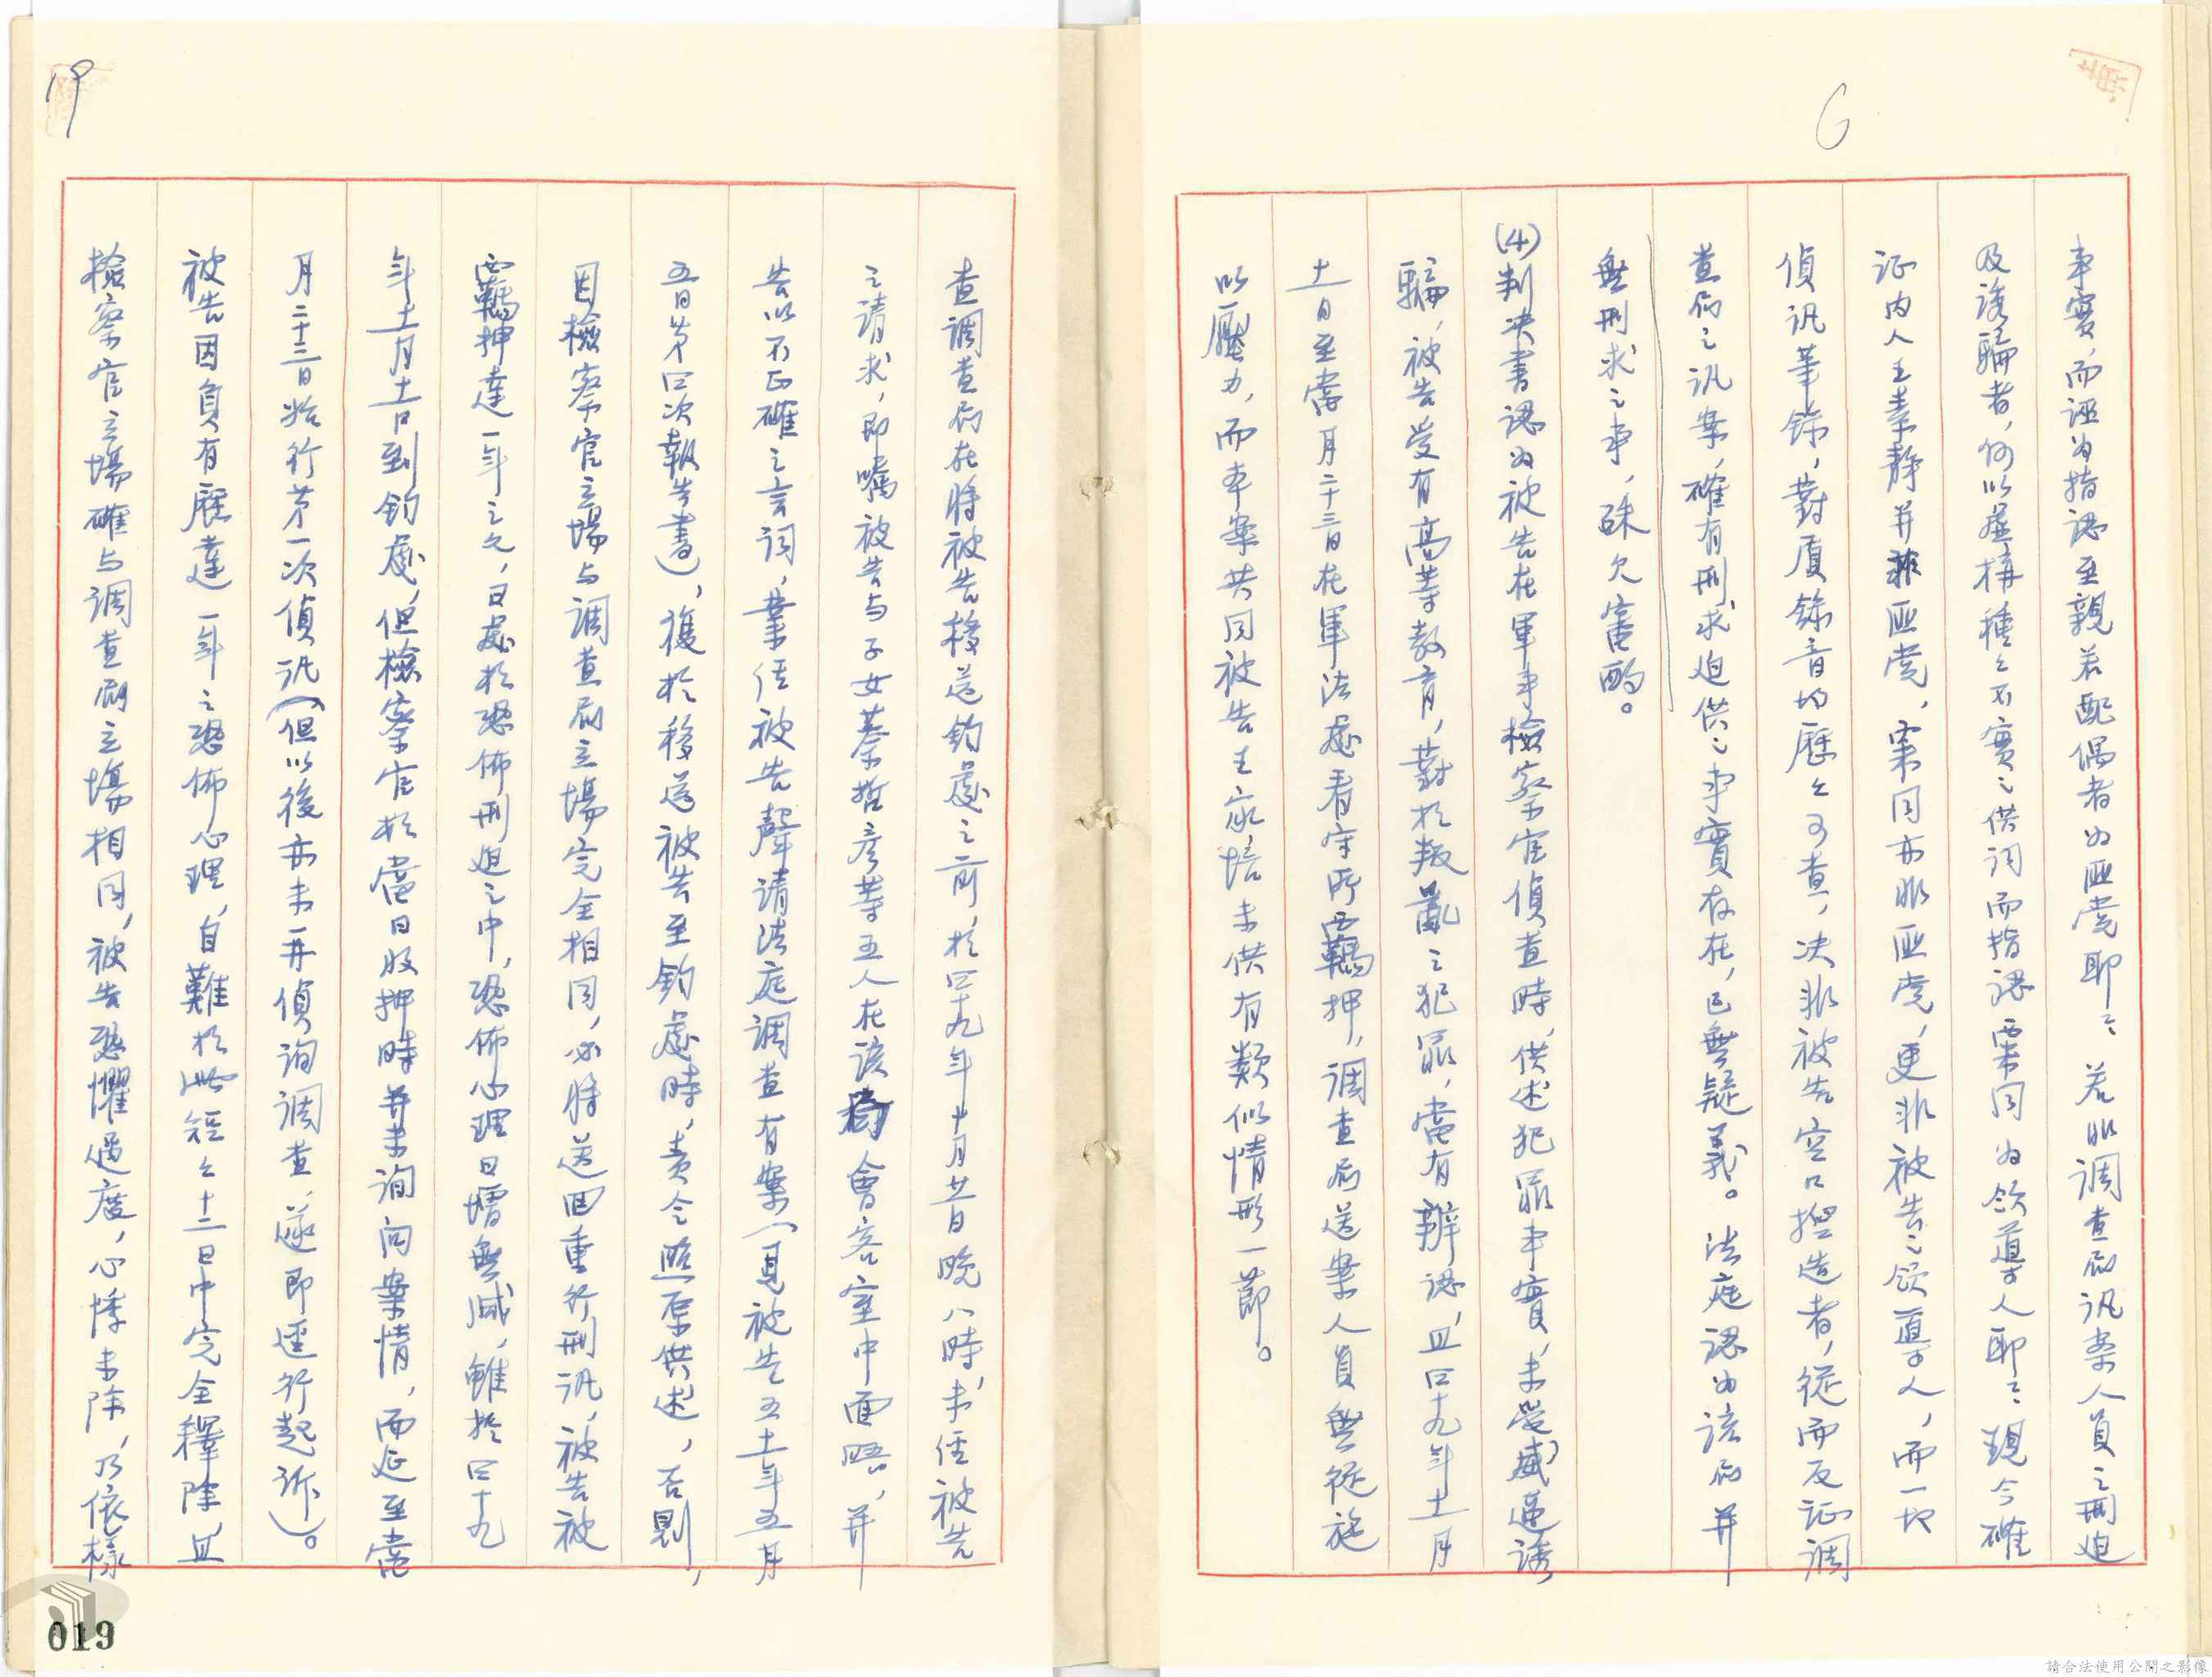 6
事實,而誣為指認至親若配偶者為匪黨耶?若非調查局訊案人員之刑迫
及誘騙者,何以虛構種々不實之供詞而指認栗同為領導人耶?現今確
証內人王素靜并非匪党,栗同亦非匪党,更非被告之領導人,而一切
偵訊筆錄,對質錄音均歷々可查,决非被告空口捏造者,從而反証調
查局之訊案,確有刑求迫供之事實存在,已無疑義。法庭認為該局并
無刑求之事,殊欠審酌。
(4)判决書認為被告在軍事檢察官偵查時,供述犯罪事實,未受威逼誘
騙,被告受有高等教育,對於叛亂之犯罪,當有辨認,且四十九年十一月
十一日至當月二十三日在軍法處看守所羈押,調查局送案人員無從施
以壓力,而本案共同被告王家培未供有類似情形一節。
19
查調查局在將被告移送鈞處之前,於四十九年十月廿一日晚八時,未經被告
之請求,即囑被告与子女蔡哲彥等五人在該局會客室中面晤,并
告以不正確之言詞,業經被告聲請法庭調查有案(見被告五十一年五月
五日第四次報告書),復於移送被告至鈞處時,責令照原供述,否則,
因檢察官立場与調查局立場完全相同,必將送回重行刑訊,被告被
羈押達一年之久,日處於恐佈刑迫之中,恐佈心理日增無減,雖於四十九
年十一月十一日到鈞處,但檢察官於當日收押時并未詢问案情,而延至當
月二十三日始行第一次偵訊(但以後亦未再偵詢調查,遂即逕行起訴)。
被告因負有歷達一年之恐佈心理,自難於此短々十二日中完全釋除,且
檢察官立場確与調查局立場相同,被告恐懼過度,心悸未除,乃依樣
019
請合法使用公開之影像